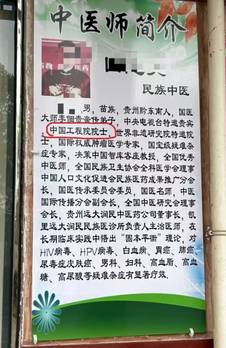 中医师简介
民族中医
男，苗族，贵州黔东南人，国医
大师李
中央电视台特邀贵宾
中国工程院院士，世界非遗研究院特邀院
士，国际权威肿瘤医学专家，国宝级疑难杂
症专家，决策中国智库客座教授，全国优秀
中医师，全国民族卫生协会全科医学会理事
中国人口文化促进会民族医药成果推广分会
长，国医传承委员会委员，国医名师，中医
国际传播分会副会长，全国中医学会理事会
会长，贵州远大润民中医药公司董事长，凯
里远大润民民族医诊所负责人主治医师，在
长期临床实践中悟出“固本平衡”理论，对
HIV病毒、HPV病毒、白血病、胃癌、肺癌、
尿毒症皮肤癌、男科、妇科、高血脂、高血
糖、高尿酸等疑难杂症有显著疗效。